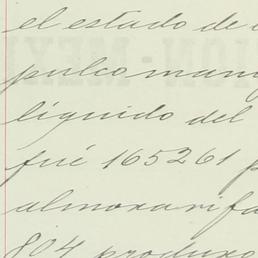 el estado de
pulco man
líquido del
fué 165261 p
almoxarifa
804 produxo